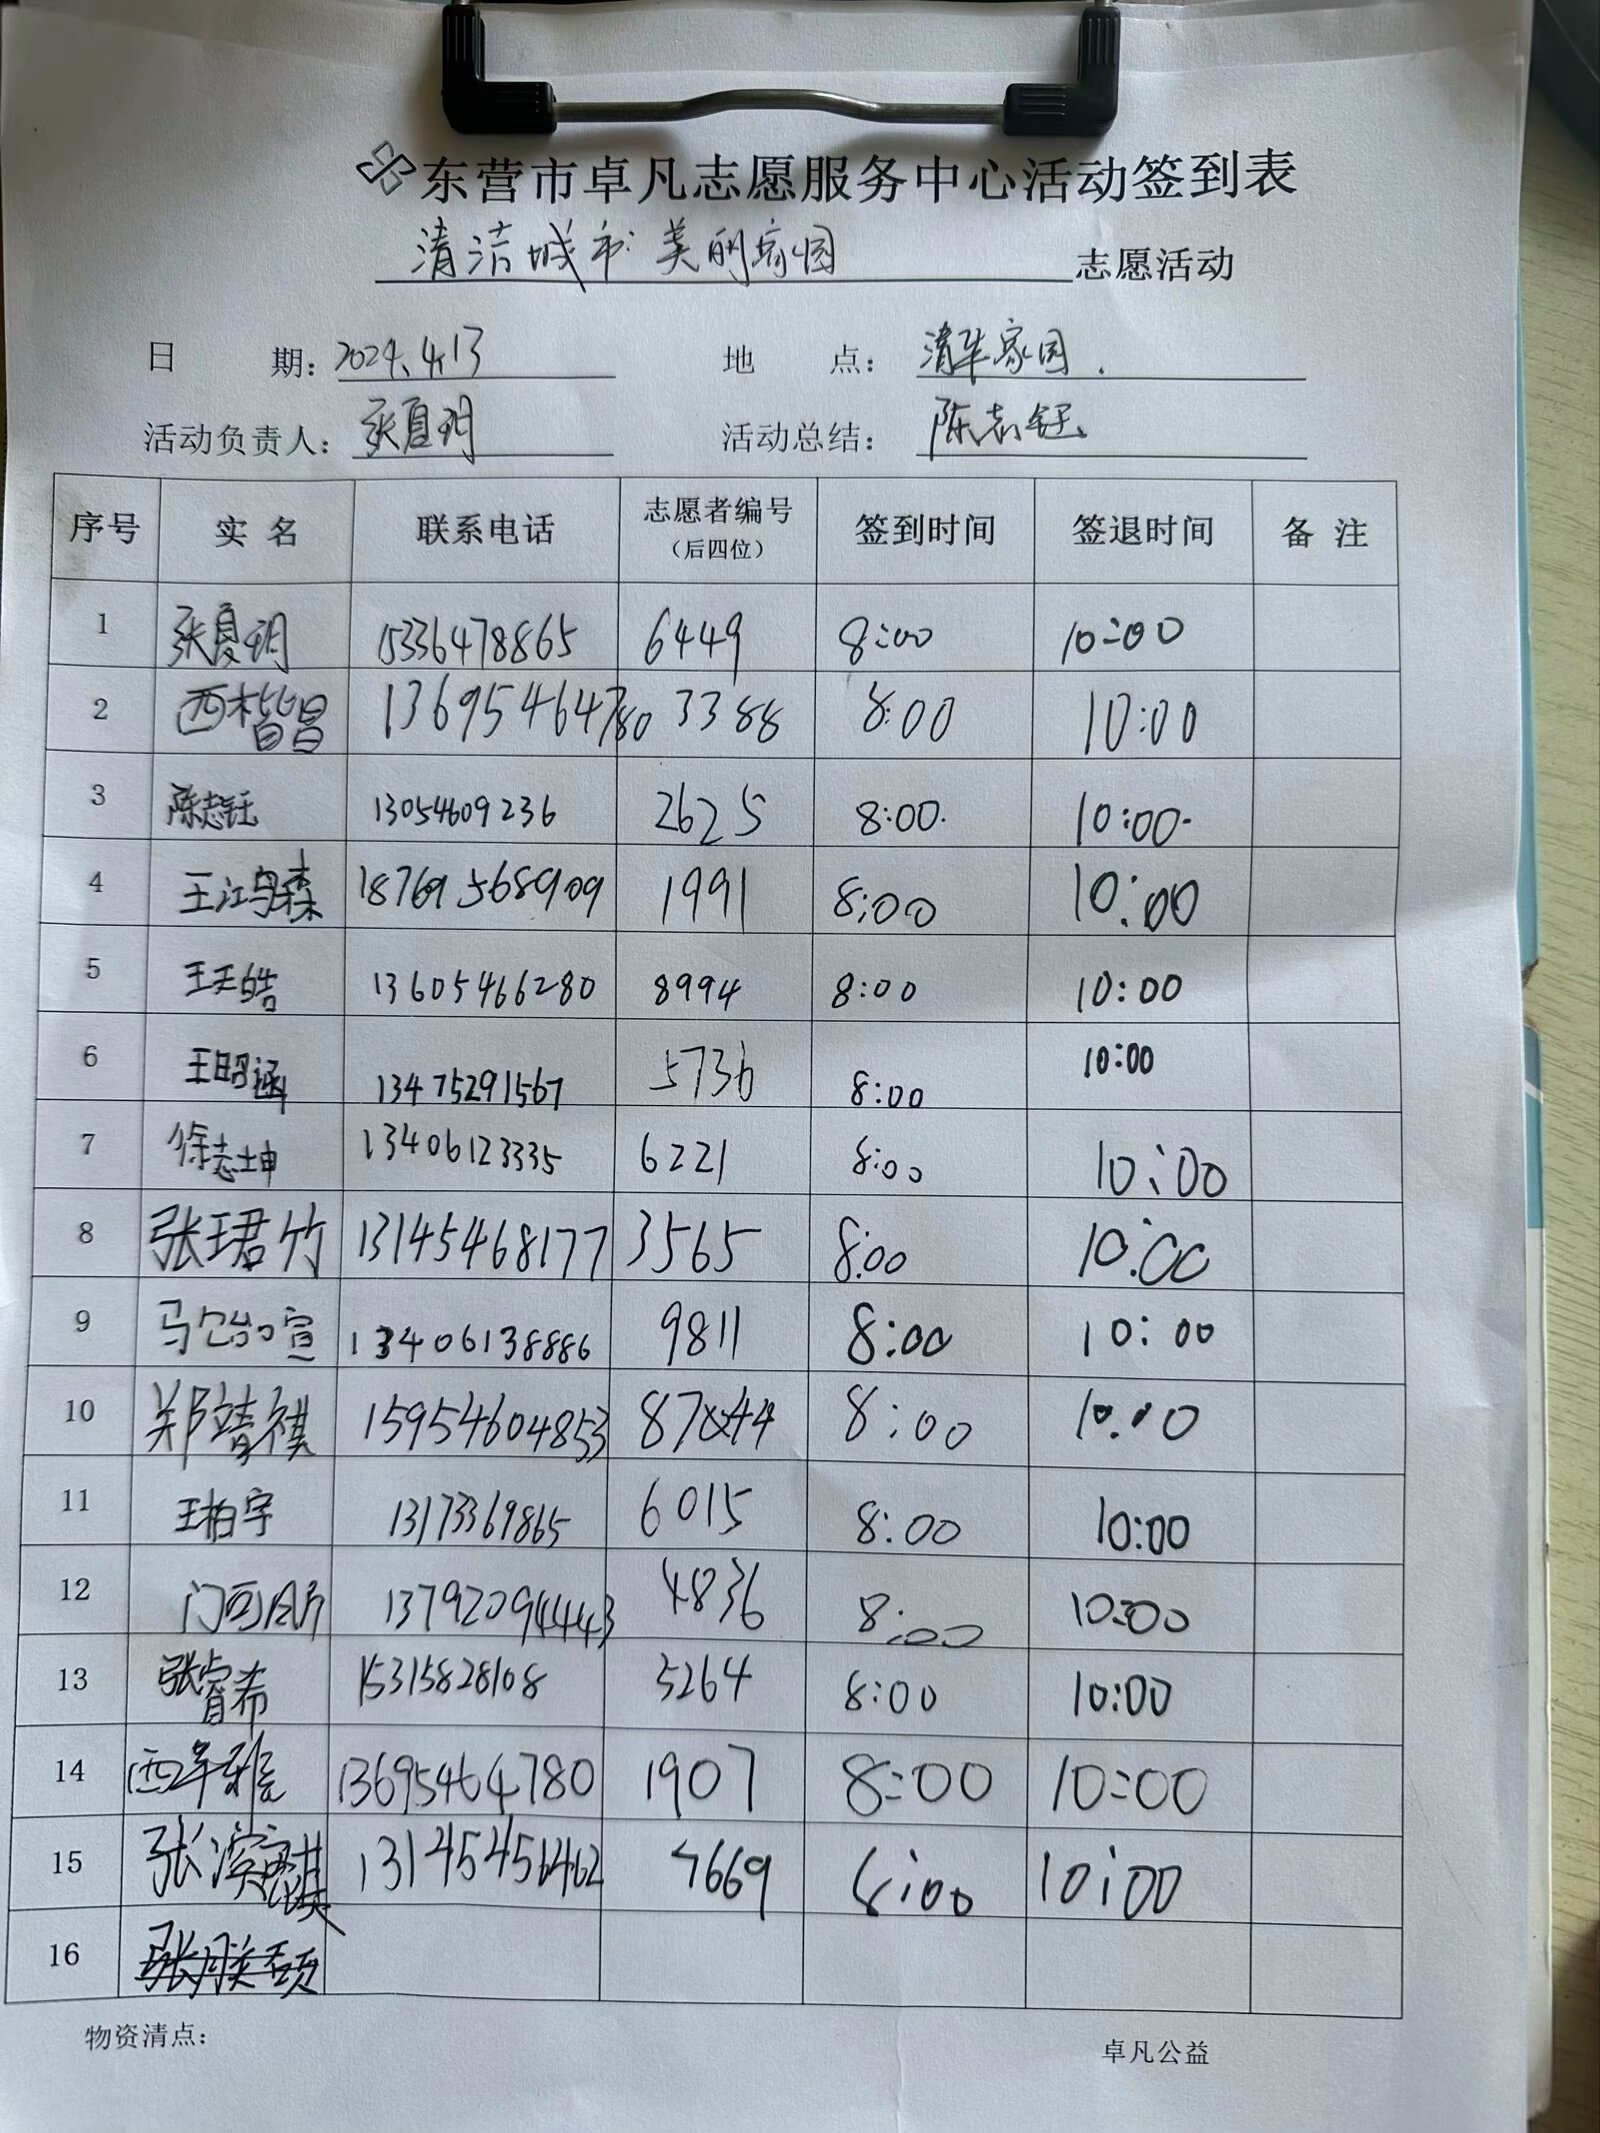 东营市卓凡志愿服务中心活动签到表
清洁城市 美丽家园 志愿活动
日 期: 2024.4.13 地 点: 清华家园.
活动负责人: 张夏玥 活动总结: 陈志钰
序号 实 名 联系电话 志愿者编号(后四位) 签到时间 签退时间 备 注
1 张夏玥 15336478865 6449 8:00 10:00
2 西楷昌 13695464780 3388 8:00 10:00
3 陈志钰 13054609236 2625 8:00. 10:00.
4 王江 1991 8:00 10:00
5 王天皓 13605466280 8994 8:00 10:00
6 王昭涵 13475291567 5736 8:00 10:00
7 徐志坤 13406123335 6221 8:00 10:00
8 张珺竹 13145468177 3565 8:00 10:00
9 马 宣 13406138886 9811 8:00 10:00
10 郑靖祺 15954604853 8:00 10:00
11 王柏宇 13173369865 6015 8:00 10:00
12 门 4836 8:00 10:00
13 张睿希 15315828108 5264 8:00 10:00
14 西 雅 13695464780 1907 8:00 10:00
15 张 淇 7669 8:00 10:00
16
物资清点: 卓凡公益